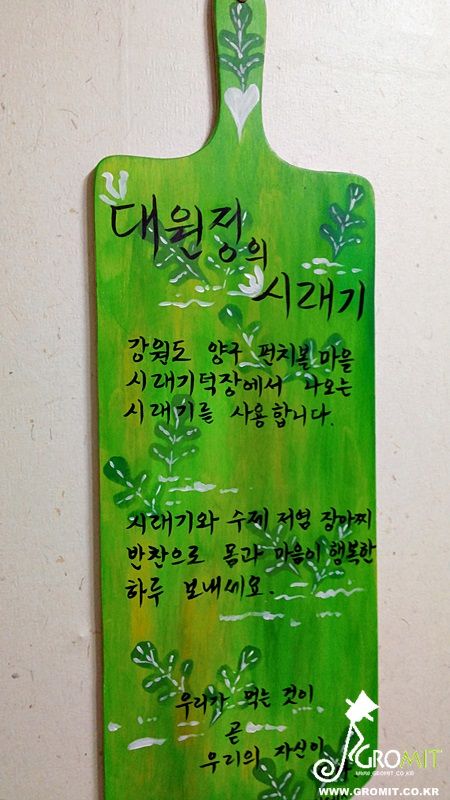 대원정의
시래기
강원도 양구 펀치볼마을
시래기덕장에서 나오는
시래기를 사용합니다.
시래기와 수제 저염 장아찌
반찬으로 몸과 마음이 행복한
하루 보내세요.
우리가 먹는 것이
곧
우리의 자신이
GROMIT
WWW.GROMIT.CO.KR
WWW.GROMIT.CO.KR